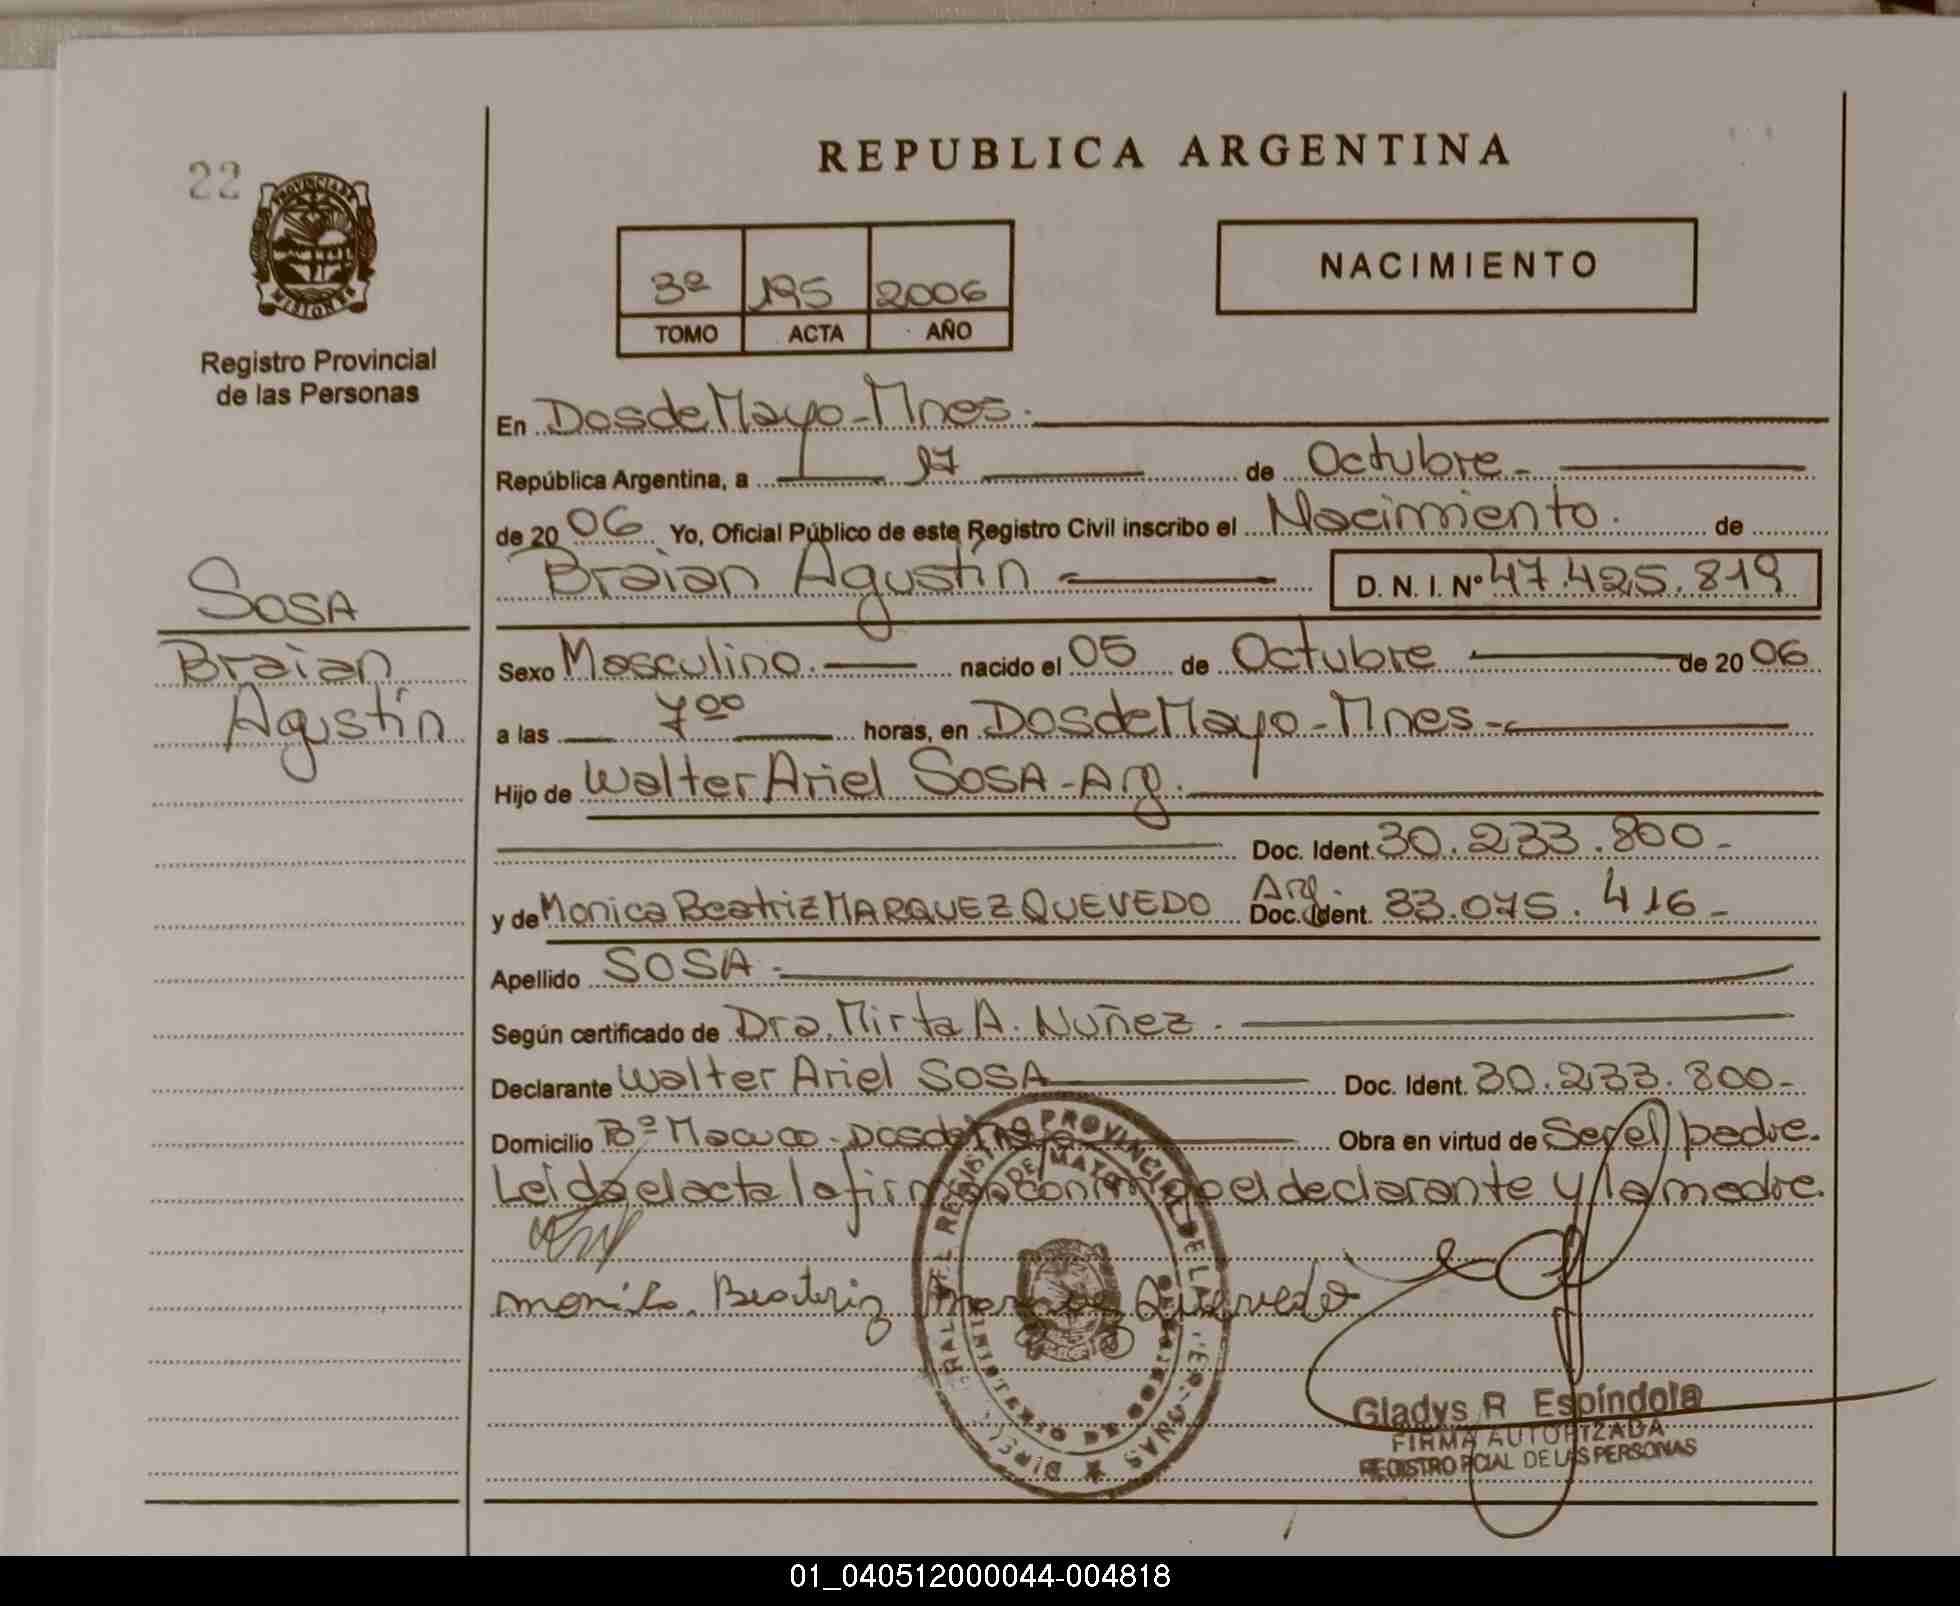 REPUBLICA ARGENTINA
22
PROVINCIA DE
MISIONES
Registro Provincial
de las Personas
3º 195 2006
TOMO ACTA AÑO
NACIMIENTO
En Dos de Mayo - Mnes.
República Argentina, a 17 de Octubre -
de 20 06 Yo, Oficial Público de este Registro Civil inscribo el Nacimiento. de
Braian Agustín D. N. I. Nº 47.425.819
SOSA
Braian
Agustín
Sexo Masculino. nacido el 05 de Octubre de 20 06
a las 7 00 horas, en Dos de Mayo - Mnes -
Hijo de Walter Ariel SOSA - Arg.
Doc. Ident. 30.233.800 -
y de Monica Beatriz MARQUEZ QUEVEDO Arg. Doc. Ident. 33.075.416 -
Apellido SOSA -
Según certificado de Dra. Mirta A. Nuñez.
Declarante Walter Ariel SOSA Doc. Ident. 30.233.800 -
Domicilio Bº Macuco - Dos de Mayo Obra en virtud de Ser el padre.
Leída el acta la firman conmigo el declarante y la madre.
Monica Beatriz Marquez Quevedo
Gladys R Espíndola
FIRMA AUTORIZADA
REGISTRO PCIAL DE LAS PERSONAS
01_040512000044-004818